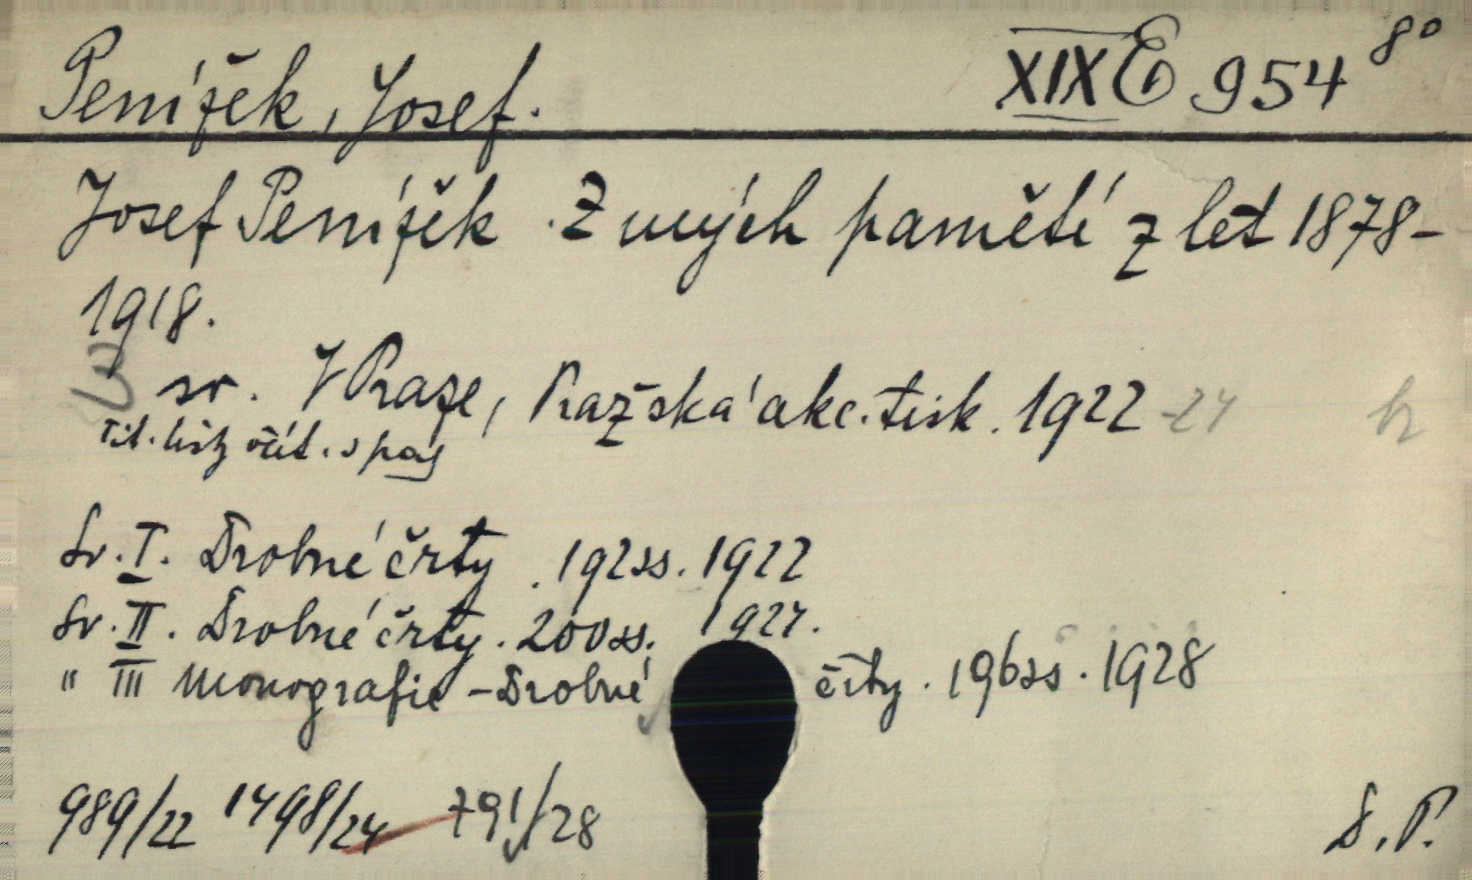 Penížek, Josef.
XIX E 954 8°
Josef Penížek. Z mých pamětí z let 1878-
1918.
3 sv. V Praze, Pražská akc. tisk. 1922-24
tit. listy očít. s
Sv. I. Drobné črty. 192ss. 1922
Sv. II. Drobné črty. 200ss. 1924.
" III Monografie - Drobné črty. 196ss. 1928
989/22 1498/24 791/28
S. P.